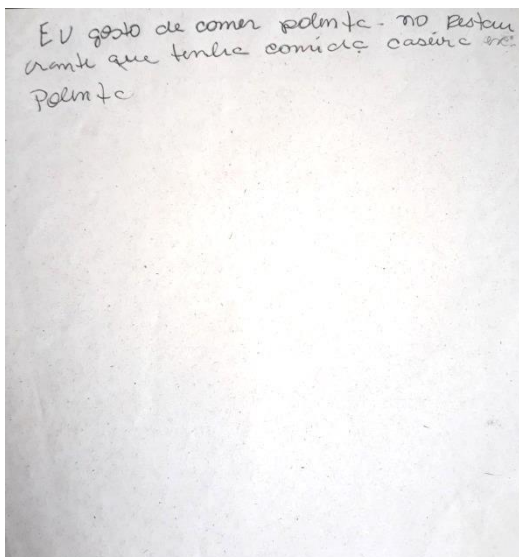 EU gosto de comer polenta. no Restau
rante que tenha comida caseira
Polenta